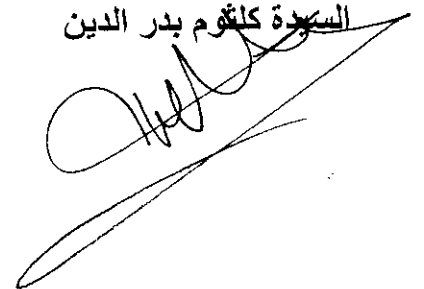 السيدة كلثوم بدر الدين